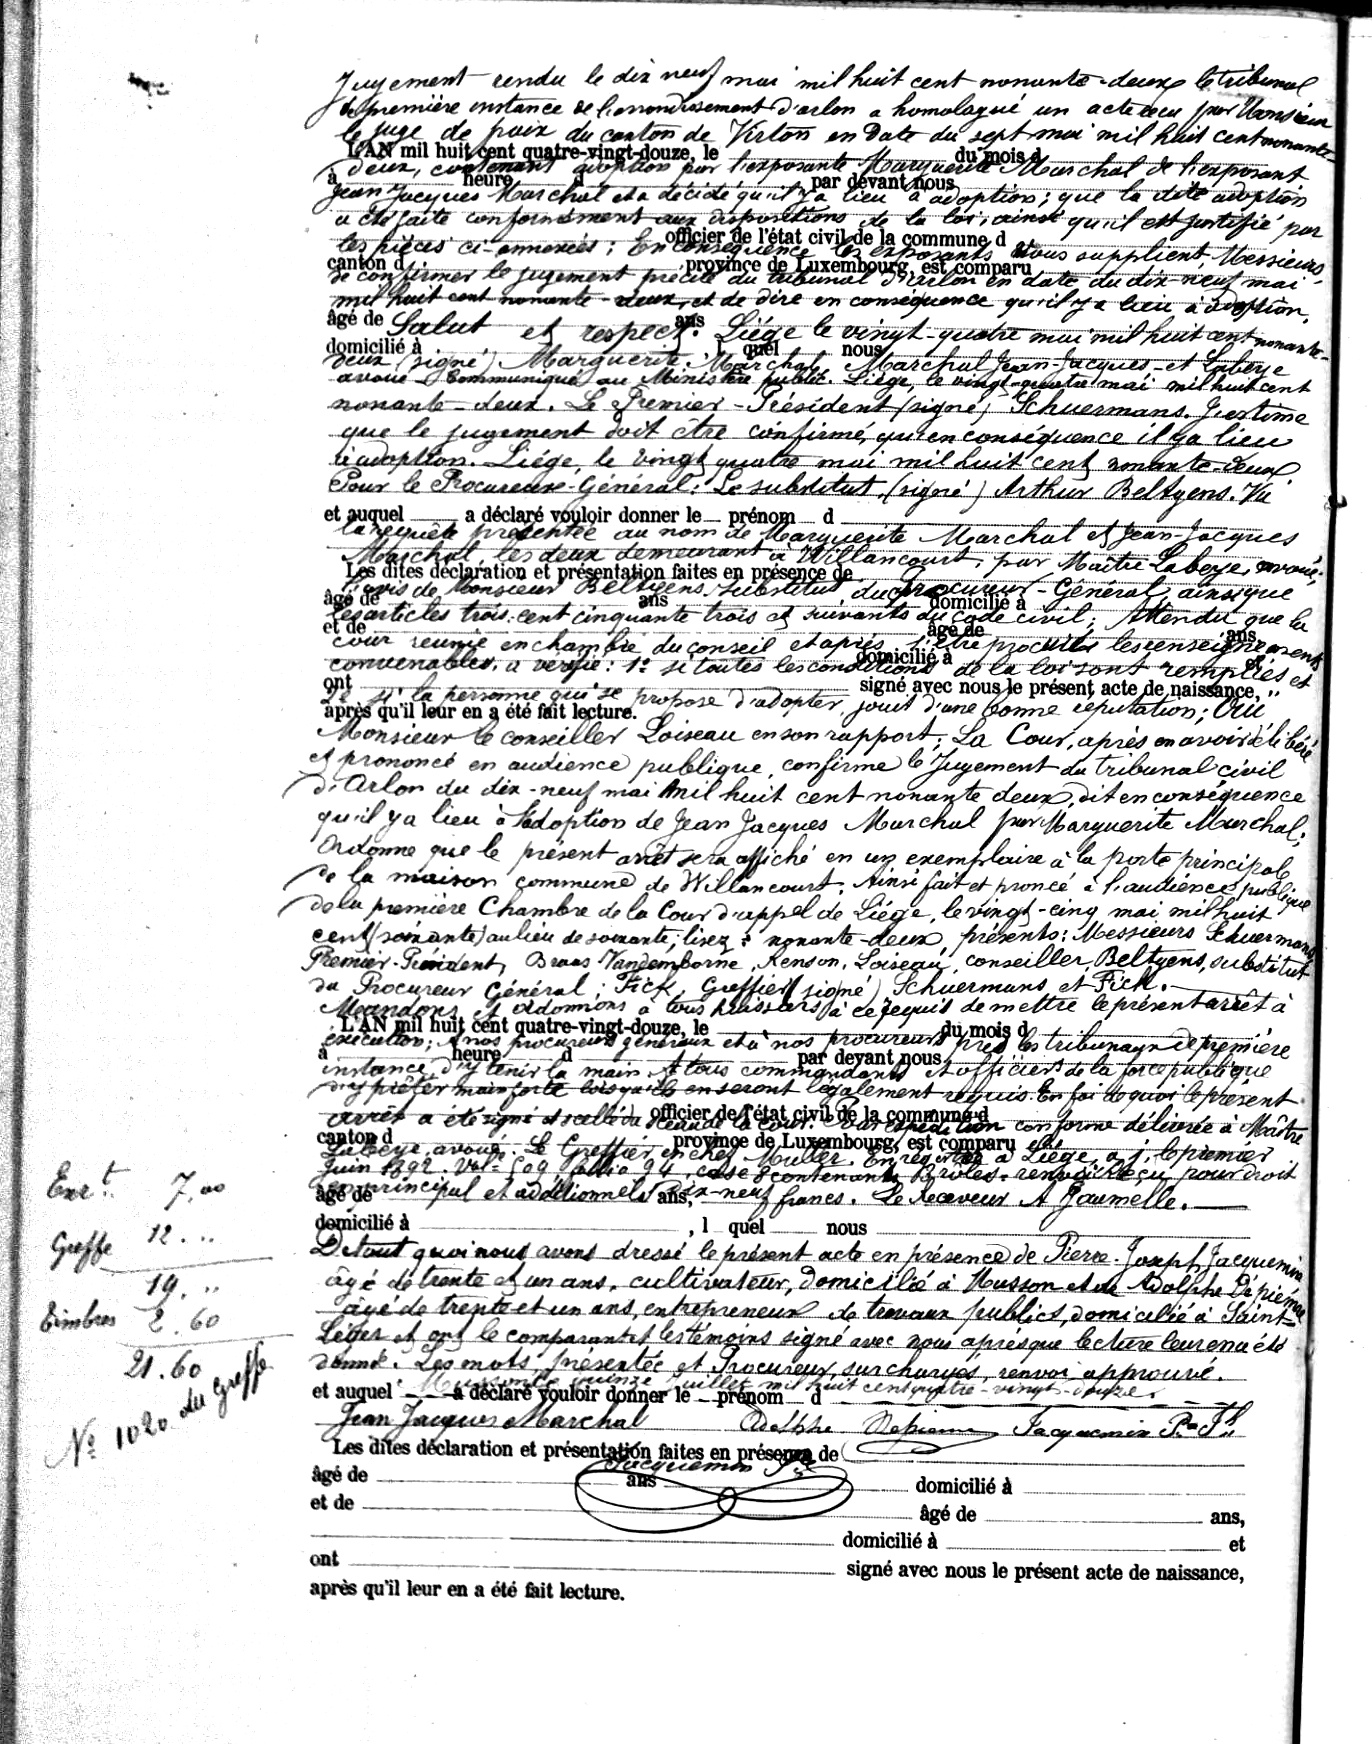 Jugement rendu le dix neuf mai mil huit cent nonante-deux le tribunal
de première instance de l'arrondissement d'arlon a homologué un acte reçu par Monsieur
le juge de paix du canton de Virton en date du sept mai mil huit cent nonante-
L'AN mil huit cent quatre-vingt-douze, le du mois d
deux, contenant adoption par l'exposante Marguerite Marchal de l'exposant
à heure d par devant nous
Jean Jacques Marchal et a décidé qu'il y a lieu à adoption; que la dite adoption
a été faite conformément aux dispositions de la loi, ainsi qu'il est justifié par
officier de l'état civil de la commune d
les pièces ci-annexées; En conséquence les exposants Vous supplient Messieurs
canton d province de Luxembourg, est comparu
de confirmer le jugement précité du tribunal d'arlon en date du dix-neuf mai
mil huit cent nonante-deux, et de dire en conséquence qu'il y a lieu à adoption.
âgé de ans
Salut et respect. Liége le vingt-quatre mai mil huit cent nonante-
domicilié à l quel nous
deux (signé) Marguerite Marchal, Marchal Jean-Jacques et Labeye
avoué. Communiqué au Ministère public. Liége, le vingt-quatre mai mil huit cent
nonante-deux. Le Premier-Président (signé) Schuermans. J'estime
que le jugement doit être confirmé, qu'en conséquence il y a lieu
à adoption. Liége, le vingt quatre mai mil huit cent nonante-deux
Pour le Procureur-Général: Le substitut, (signé) Arthur Beltjens. Vu
et auquel a déclaré vouloir donner le prénom d
la requête présentée au nom de Marguerite Marchal et Jean-Jacques
Marchal, les deux demeurant à Willancourt, par Maître Labeye, avoué;
Les dites déclaration et présentation faites en présence de
l'avis de Monsieur Beltjens, substitut du Procureur-Général, ainsi que
âgé de ans domicilié à
les articles trois-cent cinquante trois et suivants du code civil; Attendu que la
et de âgé de ans,
cour réunie en chambre du conseil et après s'être procuré les renseignements
domicilié à et
convenables, a vérifié: 1° si toutes les conditions de la loi sont remplies et
ont signé avec nous le présent acte de naissance,
2° si la personne qui se propose d'adopter jouit d'une bonne réputation; Ouï
après qu'il leur en a été fait lecture.
Monsieur le conseiller Loiseau en son rapport; La Cour, après en avoir délibéré
et prononcé en audience publique, confirme le Jugement du tribunal civil
d'Arlon du dix-neuf mai mil huit cent nonante deux, dit en conséquence
qu'il y a lieu à l'adoption de Jean Jacques Marchal par Marguerite Marchal;
Ordonne que le présent arrêt sera affiché en un exemplaire à la porte principale
de la maison commune de Willancourt. Ainsi fait et proncé à l'audience publique
de la première Chambre de la Cour d'appel de Liége, le vingt-cinq mai mil huit
cent (soixante) au lieu de soixante; lisez: nonante-deux, présents: Messieurs Schuermans,
Premier-Président, Braas Vandenborne, Renson, Loiseau, conseiller, Beltjens, substitut
du Procureur Général; Fick, Greffier (signé) Schuermans et Fick.
Mandons et ordonnons à tous huissiers à ce requis de mettre le présent arrêt à
L'AN mil huit cent quatre-vingt-douze, le du mois d
exécution; A nos procureurs généraux et à nos procureurs près les tribunaux de première
à heure d par devant nous
instance d'y tenir la main. A tous commandants et officiers de la force publique
d'y prêter main forte lorsqu'ils en seront légalement requis. En foi de quoi le présent
officier de l'état civil de la commune d
arrêt a été signé et scellé du sceau de la cour. Pour expédition conforme délivrée à Maître
canton d province de Luxembourg, est comparu
Labeye, avoué. Le Greffier en chef Muller. Enregistré à Liége, a. j. le premier
Juin 1892. Vol= 509 folio 94, case 8 contenant 3 rôles. renvoi Reçu pour droit
âgé de ans,
en principal et additionnels dix-neuf francs. Le Receveur A Jaumelle.
domicilié à , l quel nous
De tout quoi nous avons dressé le présent acte en présence de Pierre-Joseph Jacquemin
âgé de trente et un ans, cultivateur, domicilié à Musson et de Adolphe Dépiémée
âgé de trente et un ans, entrepreneur de travaux publics, domicilié à Saint-
Léger et ont le comparant et les témoins signé avec nous après que lecture leur en a été
donné. Les mots, présentée et Procureur, surchargés, renvoi approuvé.
Musson ce quinze juillet mil huit cent quatre-vingt-douze.
et auquel a déclaré vouloir donner le prénom d
Jean Jacques Marchal Adolphe Jacquemin P= Jh
Les dites déclaration et présentation faites en présence de
Jacquemin
âgé de ans domicilié à
et de âgé de ans,
domicilié à et
ont signé avec nous le présent acte de naissance,
après qu'il leur en a été fait lecture.
Enr.t 7,00
Greffe 12. "
19. "
Timbres 2.60
21.60
N° 1020 du Greffe